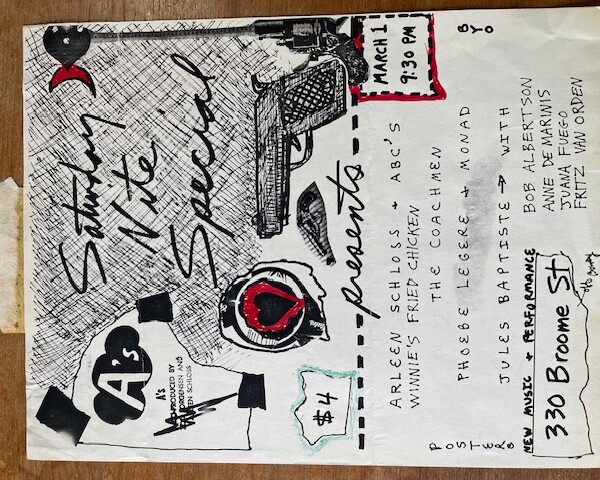 Saturday
Nite
Special
A's
A's
PRODUCED BY
JORGENSEN AND
SCHLOSS
$4
presents
MARCH 1
9:30 PM
ARLEEN SCHLOSS + ABC'S
WINNIE'S FRIED CHICKEN
THE COACHMEN
PHOEBE LEGERE + MONAD
JULES BAPTISTE → WITH
BOB ALBERTSON
ANNE DEMARINIS
JUANA FUEGO
FRITZ VAN ORDEN
BYO
POSTERS
NEW MUSIC + PERFORMANCE
330 Broome St